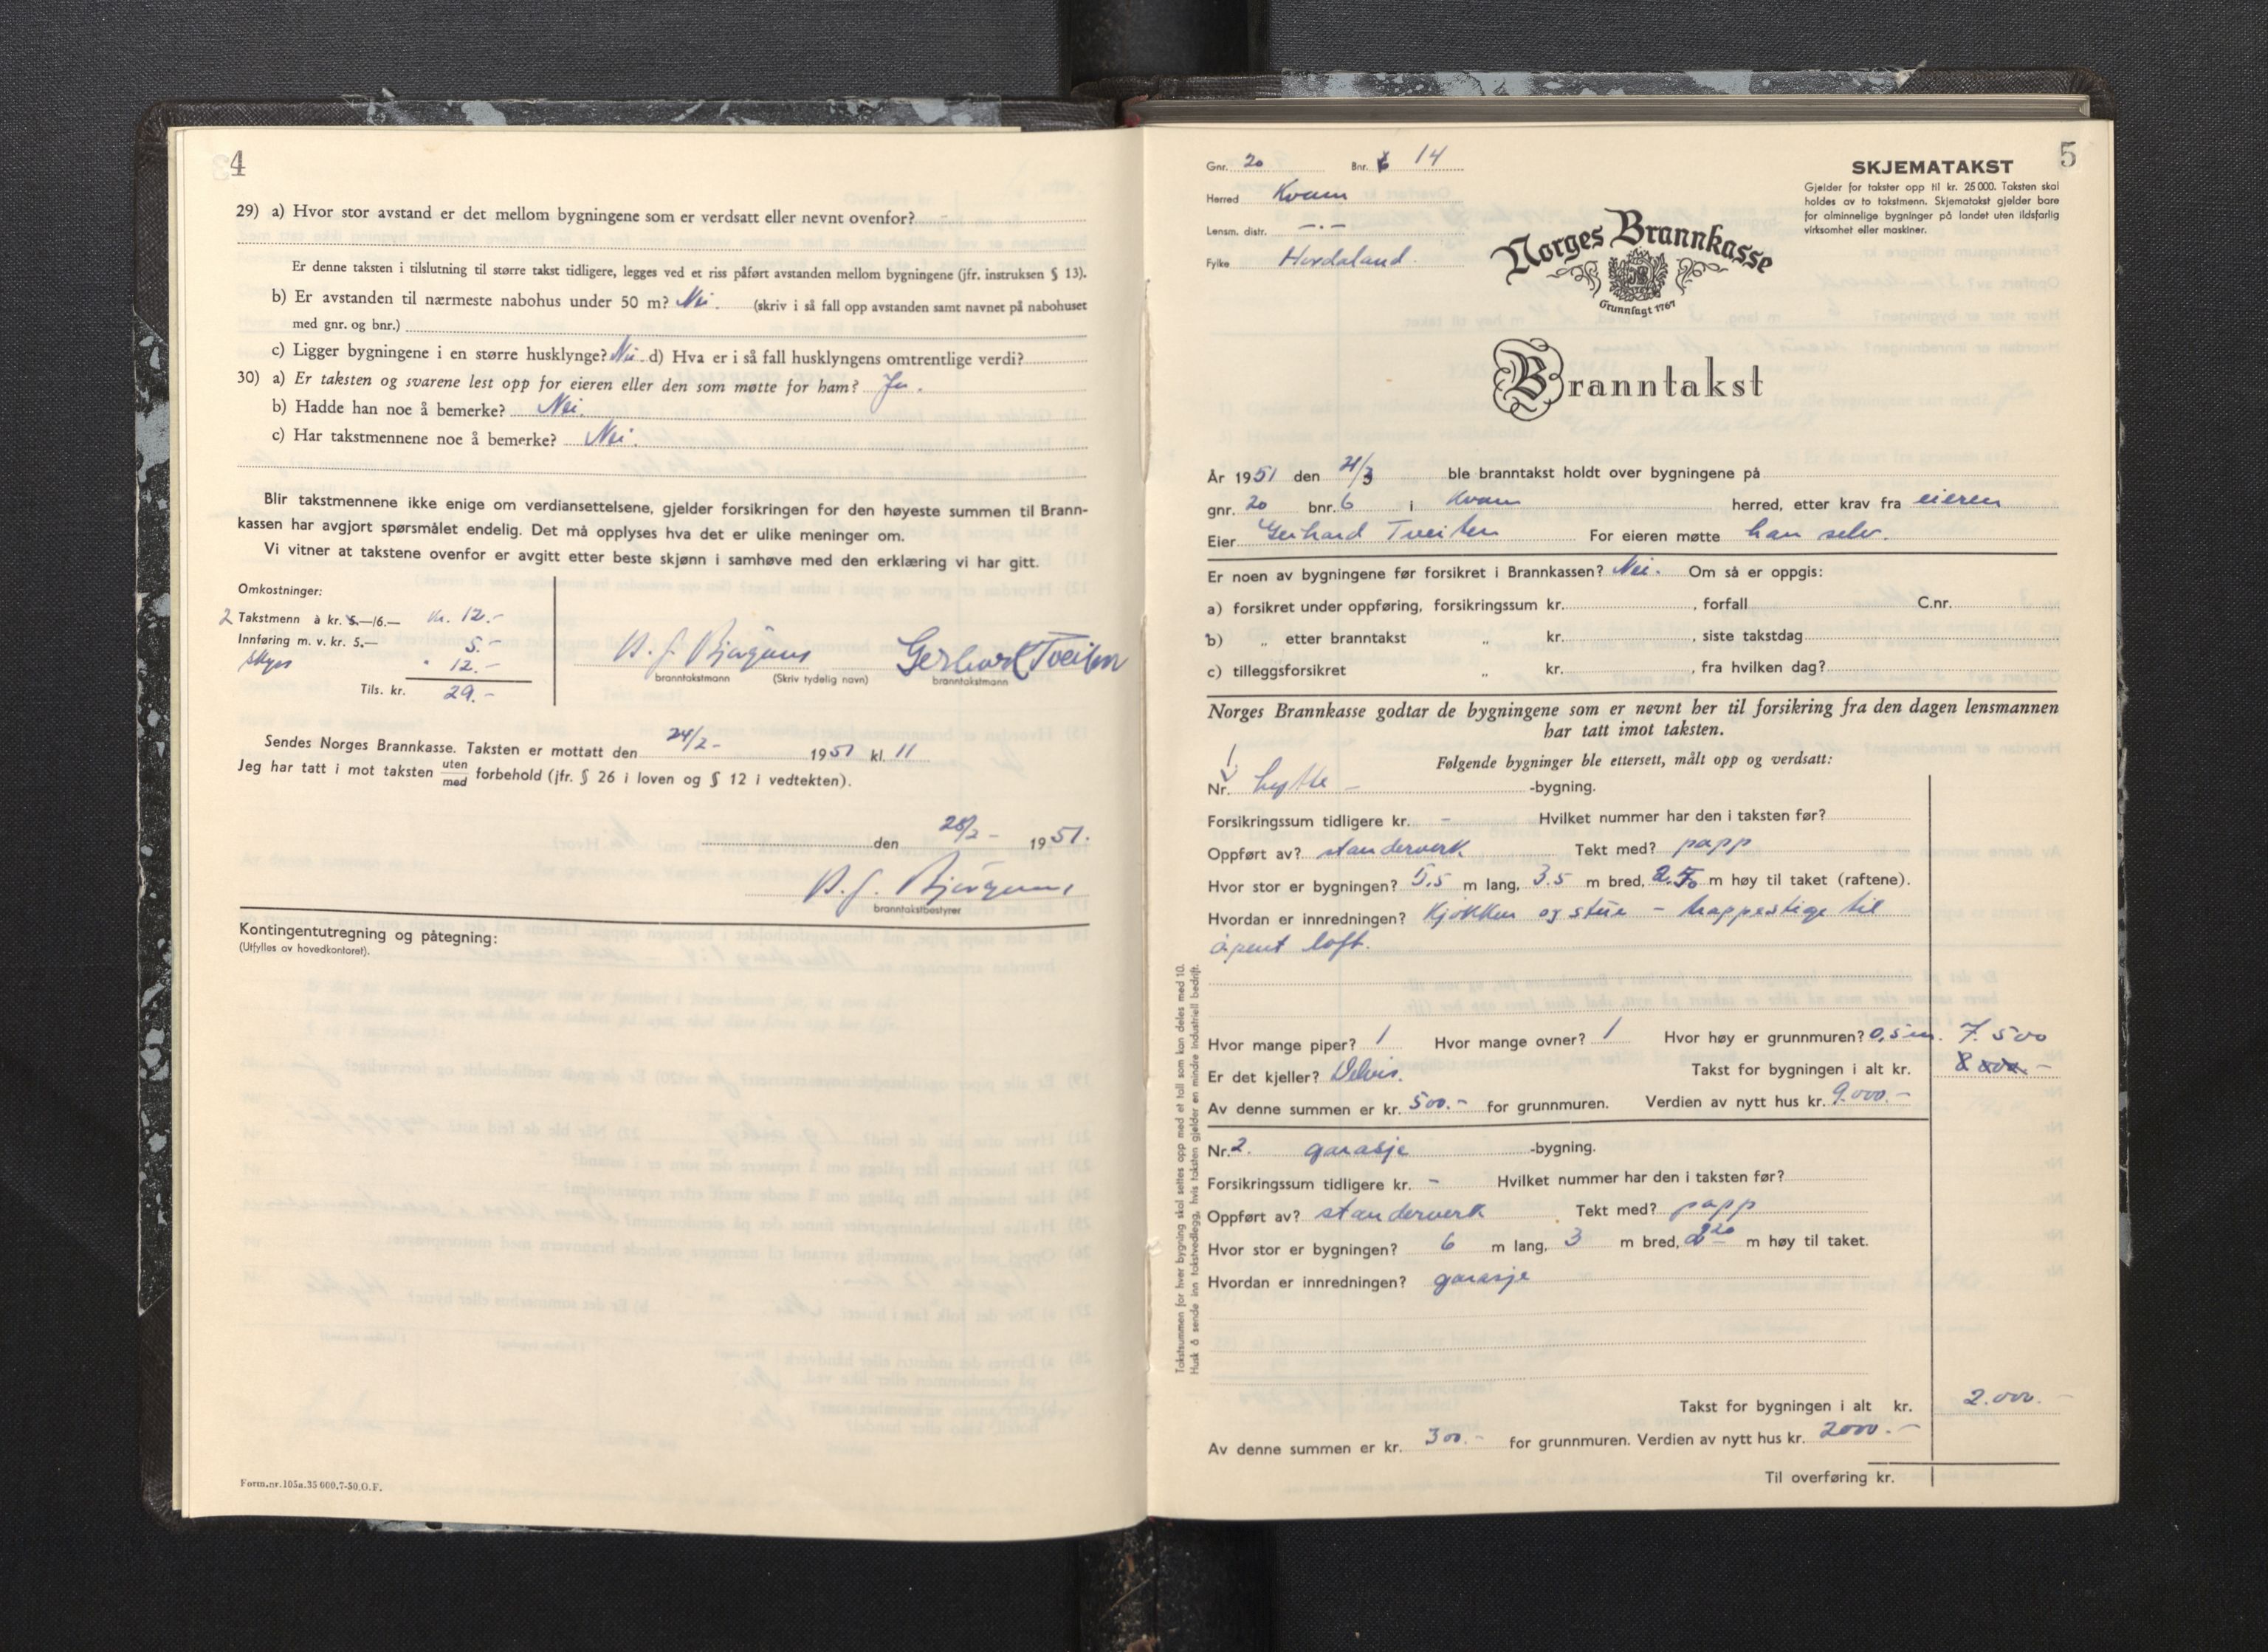 4
29) a) Hvor stor avstand er det mellom bygningene som er verdsatt eller nevnt ovenfor? -
Er denne taksten i tilslutning til større takst tidligere, legges ved et riss påført avstanden mellom bygningene (jfr. instruksen § 13).
b) Er avstanden til nærmeste nabohus under 50 m? Nei. (skriv i så fall opp avstanden samt navnet på nabohuset
med gnr. og bnr.)
c) Ligger bygningene i en større husklynge? Nei. d) Hva er i så fall husklyngens omtrentlige verdi?
30) a) Er taksten og svarene lest opp for eieren eller den som møtte for ham? Ja.
b) Hadde han noe å bemerke? Nei.
c) Har takstmennene noe å bemerke? Nei.
Blir takstmennene ikke enige om verdiansettelsene, gjelder forsikringen for den høyeste summen til Brann-
kassen har avgjort spørsmålet endelig. Det må opplyses hva det er ulike meninger om.
Vi vitner at takstene ovenfor er avgitt etter beste skjønn i samhøve med den erklæring vi har gitt.
Omkostninger:
2 Takstmenn à kr. 5.—/6.— kr. 12.-
Innføring m. v. kr. 5.— 5.-
Skyss " 12.-
Tils. kr. 29.-
Gerhard Tveiten
branntakstmann (Skriv tydelig navn) branntakstmann
Sendes Norges Brannkasse. Taksten er mottatt den 24/2- 1951 kl. 11
Jeg har tatt i mot taksten uten/med forbehold (jfr. § 26 i loven og § 12 i vedtekten).
den 28/2- 1951.
branntakstbestyrer
Kontingentutregning og påtegning:
(Utfylles av hovedkontoret).
Form.nr.105a.35 000.7-50.O.F.
5
Gnr. 20 Bnr. 6 14
Herred Kvam
Lensm. distr. —·—
Fylke Hordaland.
SKJEMATAKST
Gjelder for takster opp til kr. 25 000. Taksten skal
holdes av to takstmenn. Skjematakst gjelder bare
for alminnelige bygninger på landet uten ildsfarlig
virksomhet eller maskiner.
Norges Brannkasse
Grunnlagt 1767
Branntakst
År 1951 den 21/3 ble branntakst holdt over bygningene på
gnr. 20 bnr. 6 i Kvam herred, etter krav fra eieren
Eier Gerhard Tveiten For eieren møtte han selv.
Er noen av bygningene før forsikret i Brannkassen? Nei. Om så er oppgis:
a) forsikret under oppføring, forsikringssum kr. , forfall C.nr.
b) „ etter branntakst „ kr. , siste takstdag
c) tilleggsforsikret „ kr. , fra hvilken dag?
Norges Brannkasse godtar de bygningene som er nevnt her til forsikring fra den dagen lensmannen
har tatt imot taksten.
Følgende bygninger ble ettersett, målt opp og verdsatt:
Nr. 1 hytte - -bygning.
Forsikringssum tidligere kr. - Hvilket nummer har den i taksten før?
Oppført av? standerverk Tekt med? papp
Hvor stor er bygningen? 5,5 m lang, 3.5 m bred, 2.50 m høy til taket (raftene).
Hvordan er innredningen? Kjøkken og stue - trappestige til
åpent loft.
Hvor mange piper? 1 Hvor mange ovner? 1 Hvor høy er grunnmuren? 0,5 m. 7.500
Er det kjeller? Delvis. Takst for bygningen i alt kr. 8000.-
Av denne summen er kr. 500.- for grunnmuren. Verdien av nytt hus kr. 9.000.-
Nr. 2. garasje -bygning.
Forsikringssum tidligere kr. - Hvilket nummer har den i taksten før?
Oppført av? standerverk Tekt med? papp
Hvor stor er bygningen? 6 m lang, 3 m bred, 2.20 m høy til taket.
Hvordan er innredningen? garasje
Takst for bygningen i alt kr. 2.000.-
Av denne summen er kr. 300.- for grunnmuren. Verdien av nytt hus kr. 2000.-
Til overføring kr.
Takstsummen for hver bygning skal settes opp med et tall som kan deles med 10.
Husk å sende inn takstvedlegg, hvis taksten gjelder en mindre industriell bedrift.